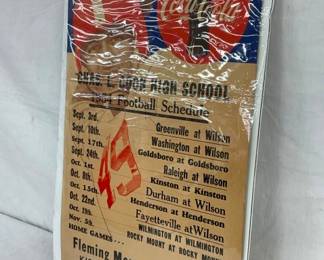 Coca-Cola
CHAS. L. COON HIGH SCHOOL
1954 Football Schedule
Sept. 3rd. Greenville at Wilson
Sept. 10th. Washington at Wilson
Sept. 17th. Goldsboro at Goldsboro
Sept. 24th. Raleigh at Wilson
Oct. 1st. Kinston at Kinston
Oct. 8th. Durham at Wilson
Oct. 15th Henderson at Henderson
Oct. 22nd. Fayetteville at Wilson
Oct. WILMINGTON AT WILMINGTON
Nov. 5th ROCKY MOUNT AT ROCKY MOUNT
HOME GAMES
Fleming
49